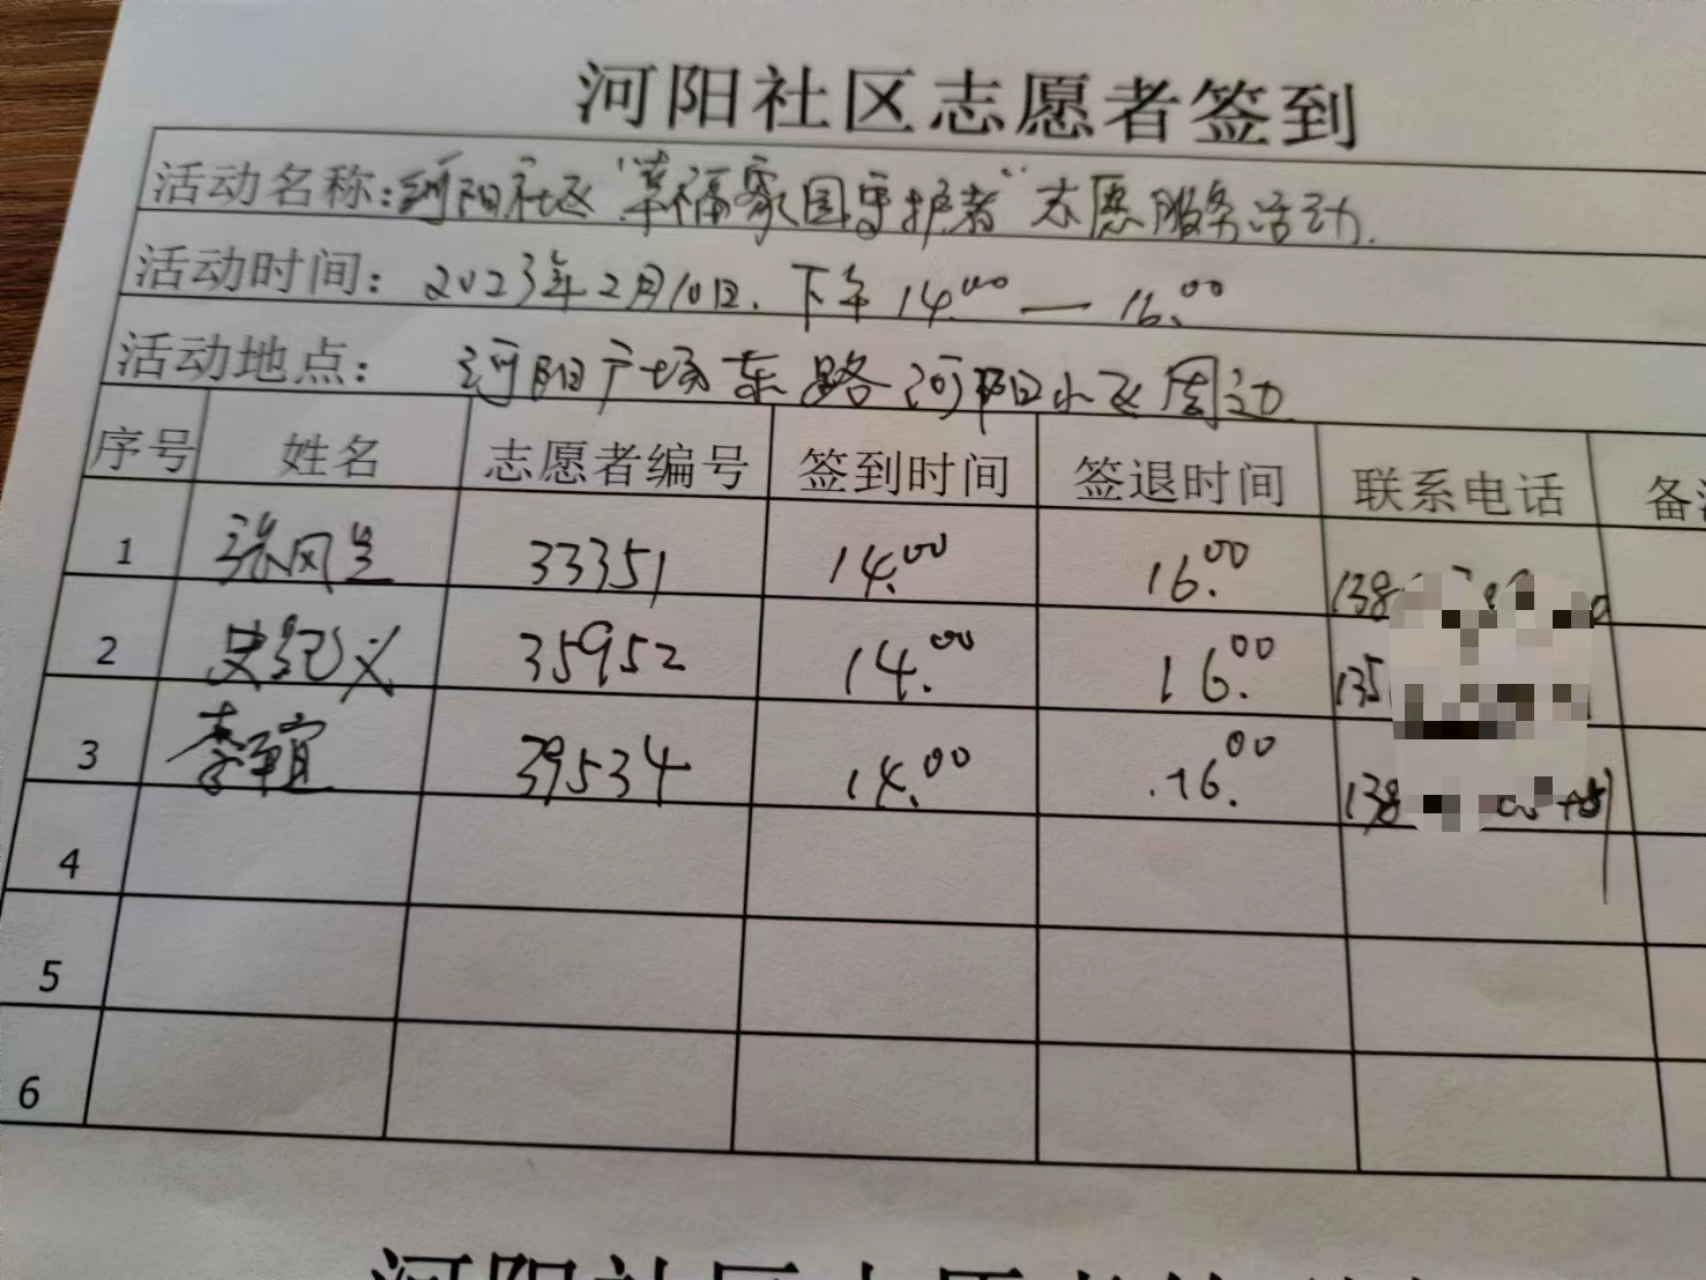 河阳社区志愿者签到
活动名称:河阳社区"幸福家园守护者"志愿服务活动.
活动时间: 2023年2月10日.下午14.00—16.00
活动地点: 河阳广场东路河阳小区周边
序号 姓名 志愿者编号 签到时间 签退时间 联系电话 备
1 张风兰 33351 14.00 16.00 138
2 史纪义 35952 14.00 16.00 135
3 李 39534 14.00 16.00 138
4
5
6
河阳社区志愿者签到